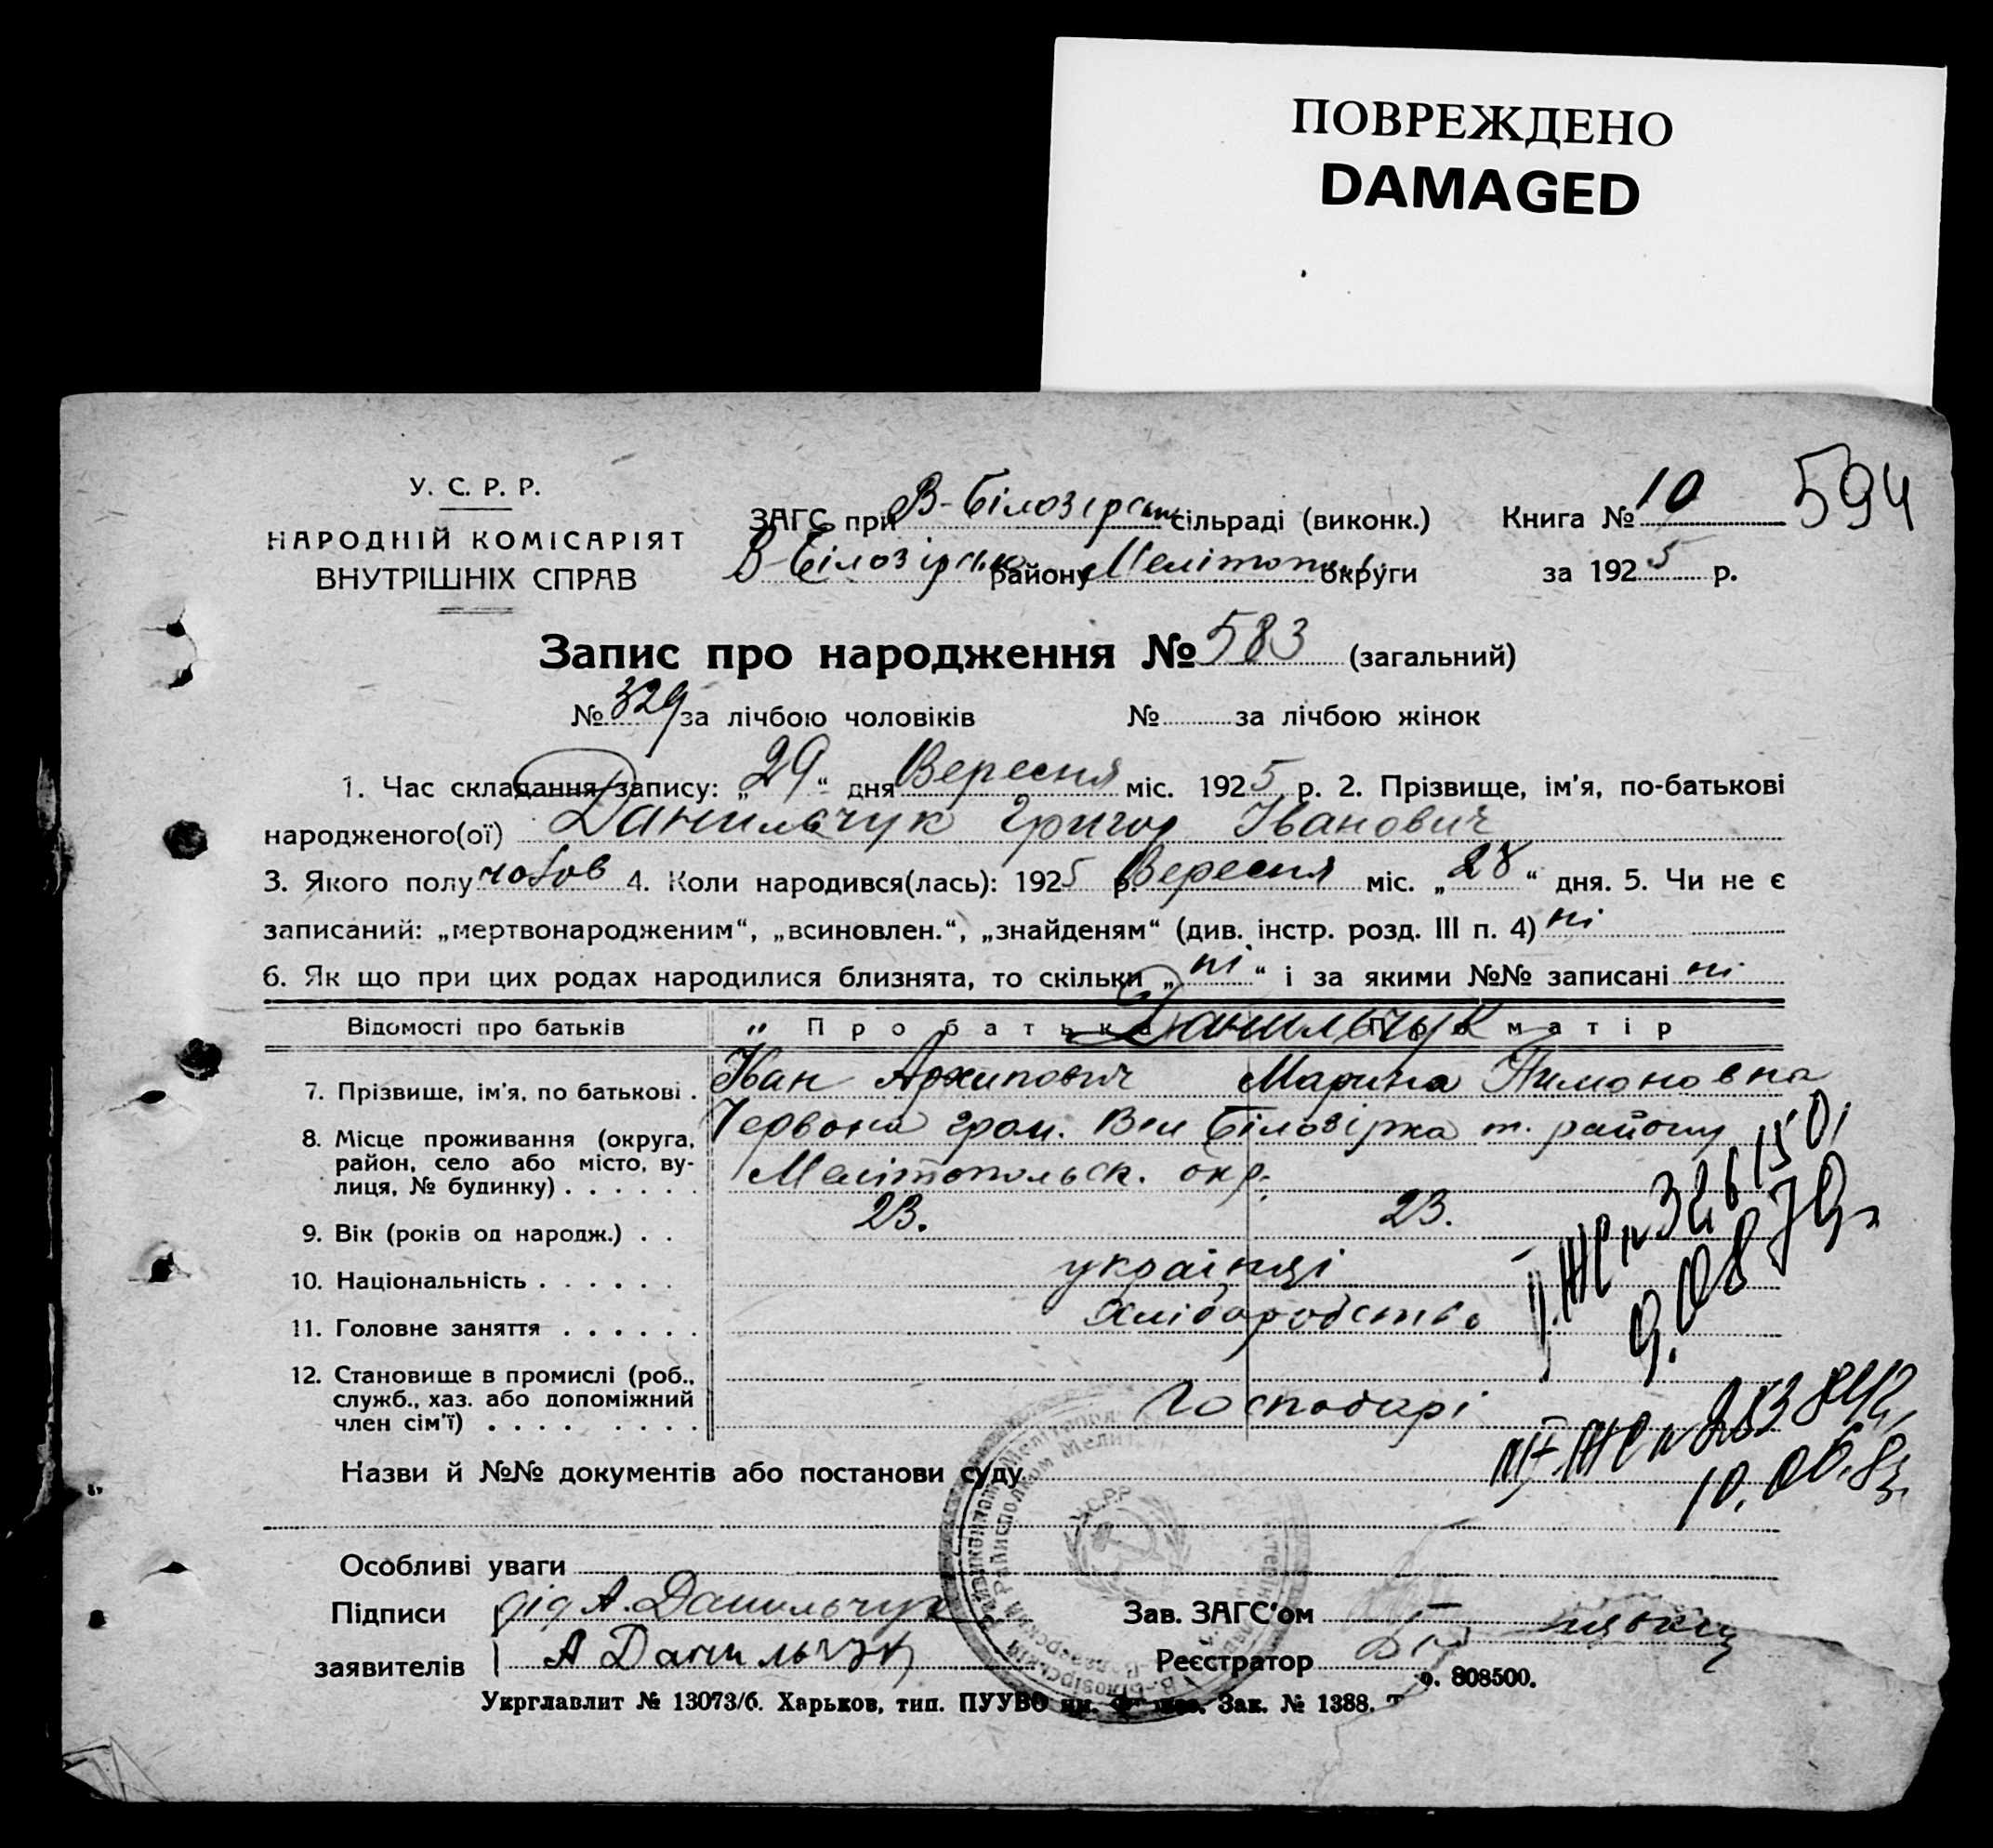 ПОВРЕЖДЕНО
DAMAGED
594
У. С. Р. Р.
НАРОДНІЙ КОМІСАРІЯТ
ВНУТРІШНІХ СПРАВ
ЗАГС при В-Білозірськ сільраді (виконк.) Книга № 10
В-Білозірськ району Мелітоп. округи за 1925 р.
Запис про народження № 583 (загальний)
№ 329 за лічбою чоловіків № за лічбою жінок
1. Час складання запису: „29“ дня Вересня міс. 1925 р. 2. Прізвище, ім'я, по-батькові
народженого(ої) Данильчук Григор Іванович
3. Якого полу чолов 4. Коли народився(лась): 1925 р. Вересня міс. „28“ дня. 5. Чи не є
записаний: „мертвонародженим“, „всиновлен.“, „знайденям“ (див. інстр. розд. III п. 4) ні
6. Як що при цих родах народилися близнята, то скільки „ні“ і за якими №№ записані ні
Відомості про батьків Про батька Про матір
Данильчук
7. Прізвище, ім'я, по батькові . Іван Архипович Марина Пимоновна
8. Місце проживання (округа, Червона гром. Вел Білозірка т. району
район, село або місто, ву-
лиця, № будинку) . . . . . . Мелітопольск. окр.
9. Вік (років од народж.) . . 23. 23.
10. Національність . . . . . . українці
11. Головне заняття . . . . . . Хліборобство
12. Становище в промислі (роб.,
служб., хаз. або допоміжний
член сім'ї) . . . . . . . . . Господарі
ЖС № 326150
9.08.79
ЖС № 283842
10.06.83
Назви й №№ документів або постанови суду
Особливі уваги
Підписи дід А. Данильчук Зав. ЗАГС'ом
заявителів А Данильчук Реєстратор
У.С.Р.Р
Укрглавлит № 13073/б. Харьков, тип. ПУУВО им. Зак. № 1388. 808500.